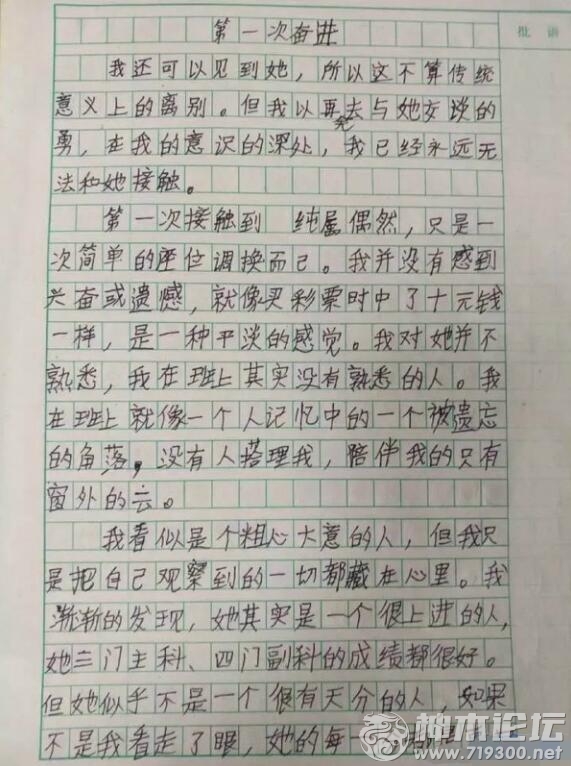 第一次奋进
批语
我还可以见到她，所以这不算传统
意义上的离别。但我以再去与她交谈的
勇，在我的意识的深处，我已经永远无
法和她接触。
第一次接触到 纯属偶然，只是一
次简单的座位调换而已。我并没有感到
兴奋或遗憾，就像买彩票时中了十元钱
一样，是一种平淡的感觉。我对她并不
熟悉，我在班上其实没有熟悉的人。我
在班上就像一个人记忆中的一个被遗忘
的角落，没有人搭理我，陪伴我的只有
窗外的云。
我看似是个粗心大意的人，但我只
是把自己观察到的一切都藏在心里。我
渐渐的发现，她其实是一个很上进的人，
她三门主科、四门副科的成绩都很好。
但她似乎不是一个很有天分的人，如果
不是我看走了眼，她的每一
神木论坛
www.719300.net